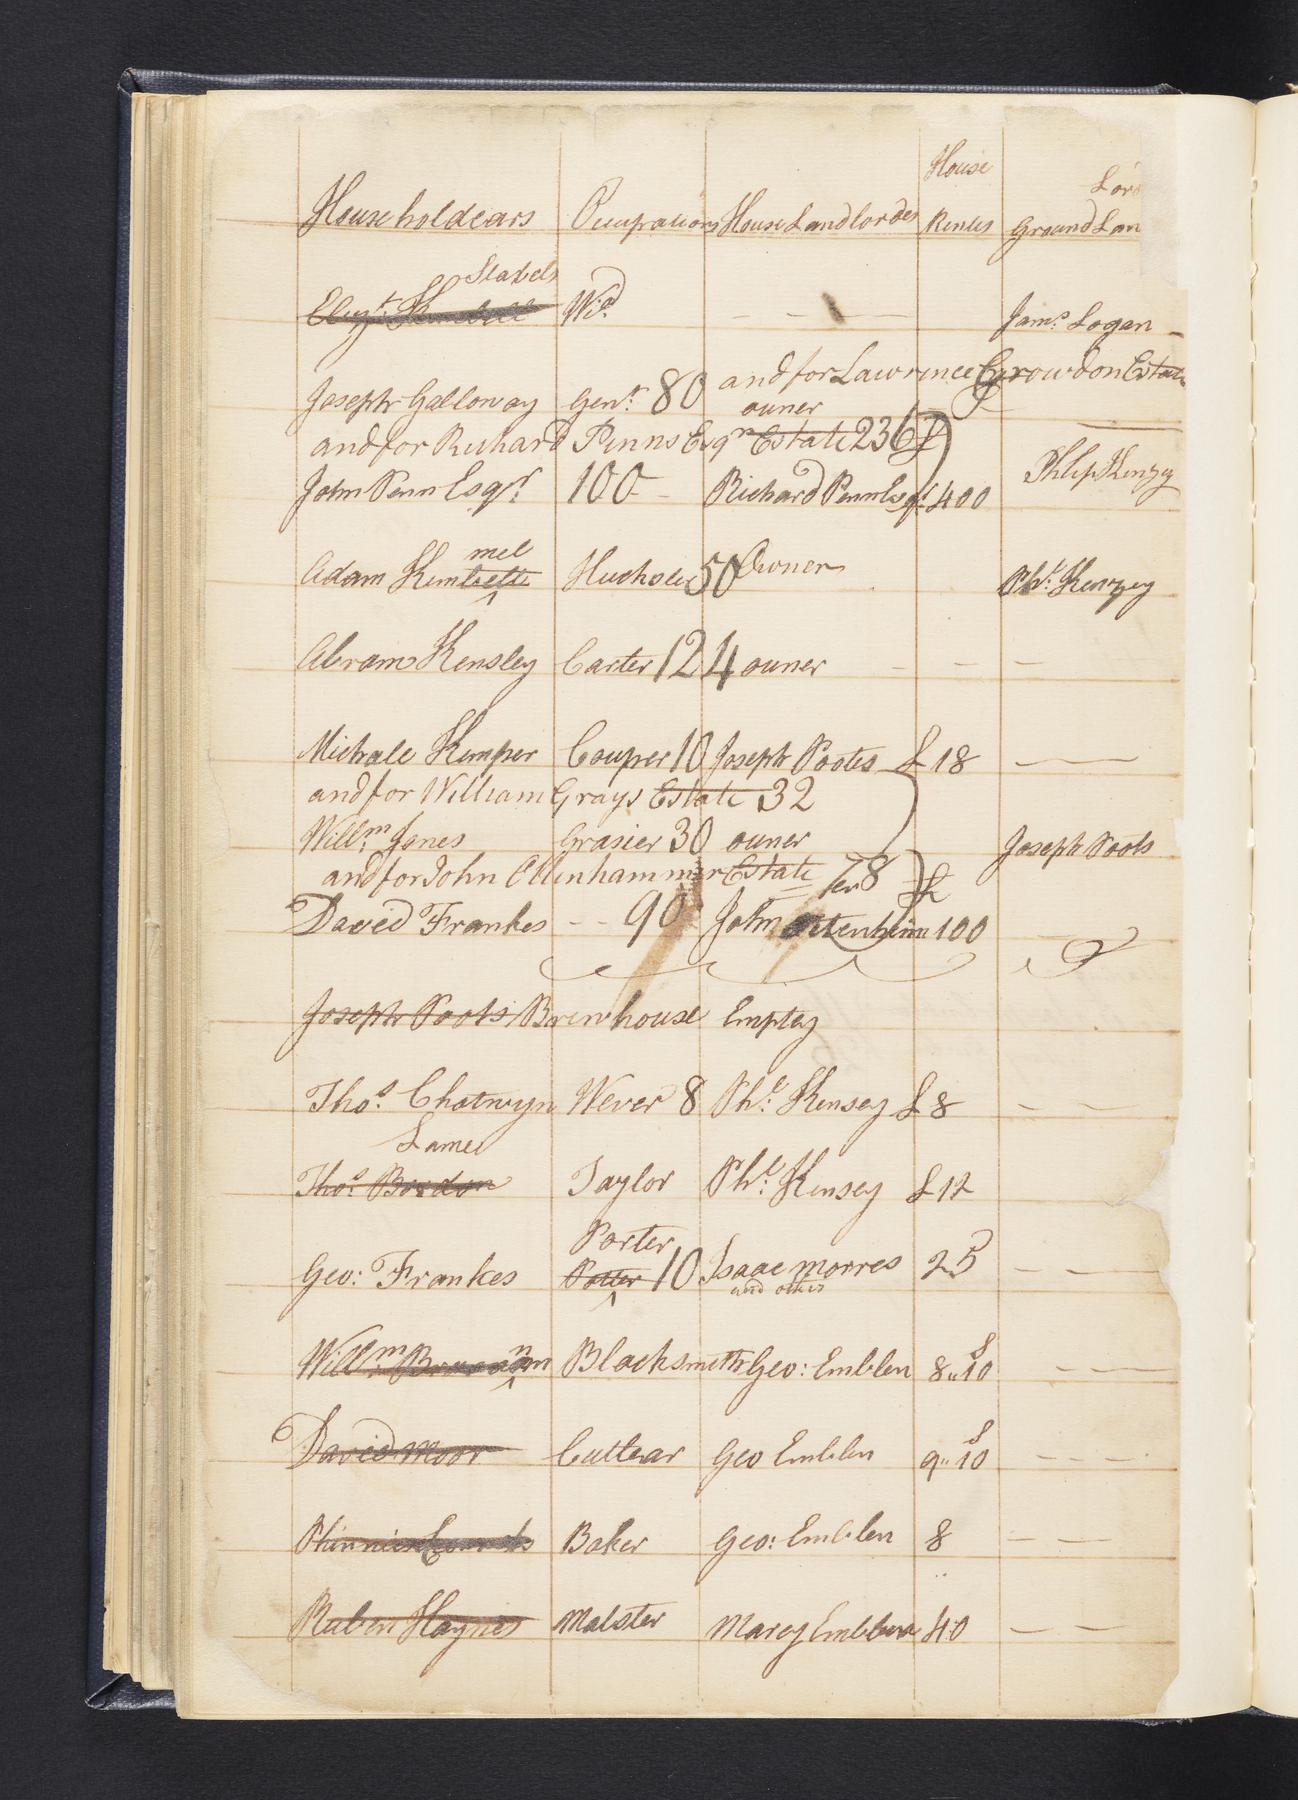 House
Lord
Householdears Occupations House Landlordes Rentes Ground Lan
Stabels
Elizt. Wid. Jams. Logan
and for Lawrence Growdon Estate
Joseph Galloway Gent. 80 owner
and for Richard Penns Esqr Estate 236 £
John Penn Esqr. 100 Richard Penn Esqr. 400 Philip Kinzey
mel
Adam Kimbettle Huckster 50 Owner Phl. Kenzey
Abram Kensley Carter 124 owner
Michale Kemper Couper 10 Joseph Pootes £ 18
and for William Grays Estate 32
Willm. Jones Grasier 30 owner Joseph Poots
and for John Estate 78 £
David Frankes 90 John 100
Joseph Poots Brewhouse Emptey
Thos. Chatwyn Wever 8 Phl. Kensey £ 8
Lame
Thos. Bordon Taylor Phl. Kensey £ 12
Porter
Geo: Frankes Potter 10 Isaac morres 25
and others
Willm. Blacksmith Geo: Emblen 8 " 10 s
David Moor Cuttear Geo Emblen 9 " 10 s
Baker Geo: Emblen 8
Ruben Haynes Malster Marey Emblen 40